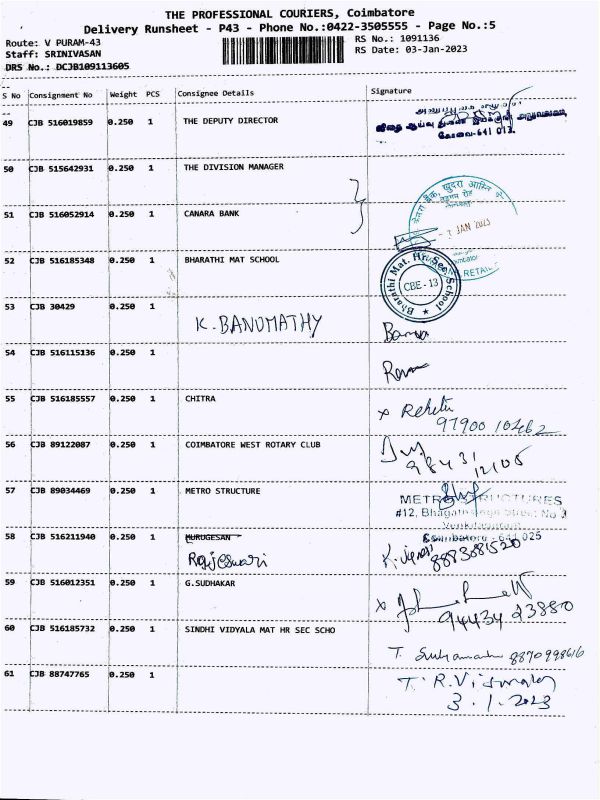 THE PROFESSIONAL COURIERS, Coimbatore
Delivery Runsheet - P43 - Phone No.:0422-3505555 - Page No.:5
Route: V PURAM-43
RS No.: 1091136
Staff: SRINIVASAN
RS Date: 03-Jan-2023
DRS No.: DCJB109113605
S No Consignment No Weight PCS Consignee Details Signature
49 CJB 516019859 0.250 1 THE DEPUTY DIRECTOR
கோவை-641 013.
50 CJB 515642931 0.250 1 THE DIVISION MANAGER
51 CJB 516052914 0.250 1 CANARA BANK
JAN 2023
RETAIL
52 CJB 516185348 0.250 1 BHARATHI MAT SCHOOL
Bharathi Mat. Hr. Sec. School
CBE - 13
53 CJB 30429 0.250 1
K. BANUMATHY
54 CJB 516115136 0.250 1
55 CJB 516185557 0.250 1 CHITRA
x Rekha
97900 10462
56 CJB 89122087 0.250 1 COIMBATORE WEST ROTARY CLUB
98431
12105
57 CJB 89034469 0.250 1 METRO STRUCTURE
METRO STRUCTURES
#12, Bhagat Singh Street No
Coimbatore - 641 025
58 CJB 516211940 0.250 1 MURUGESAN
Rajeswari
8883681520
59 CJB 516012351 0.250 1 G.SUDHAKAR
x
94434 23880
60 CJB 516185732 0.250 1 SINDHI VIDYALA MAT HR SEC SCHO
T.
8870998616
61 CJB 88747765 0.250 1
T. R.
3.1.2023